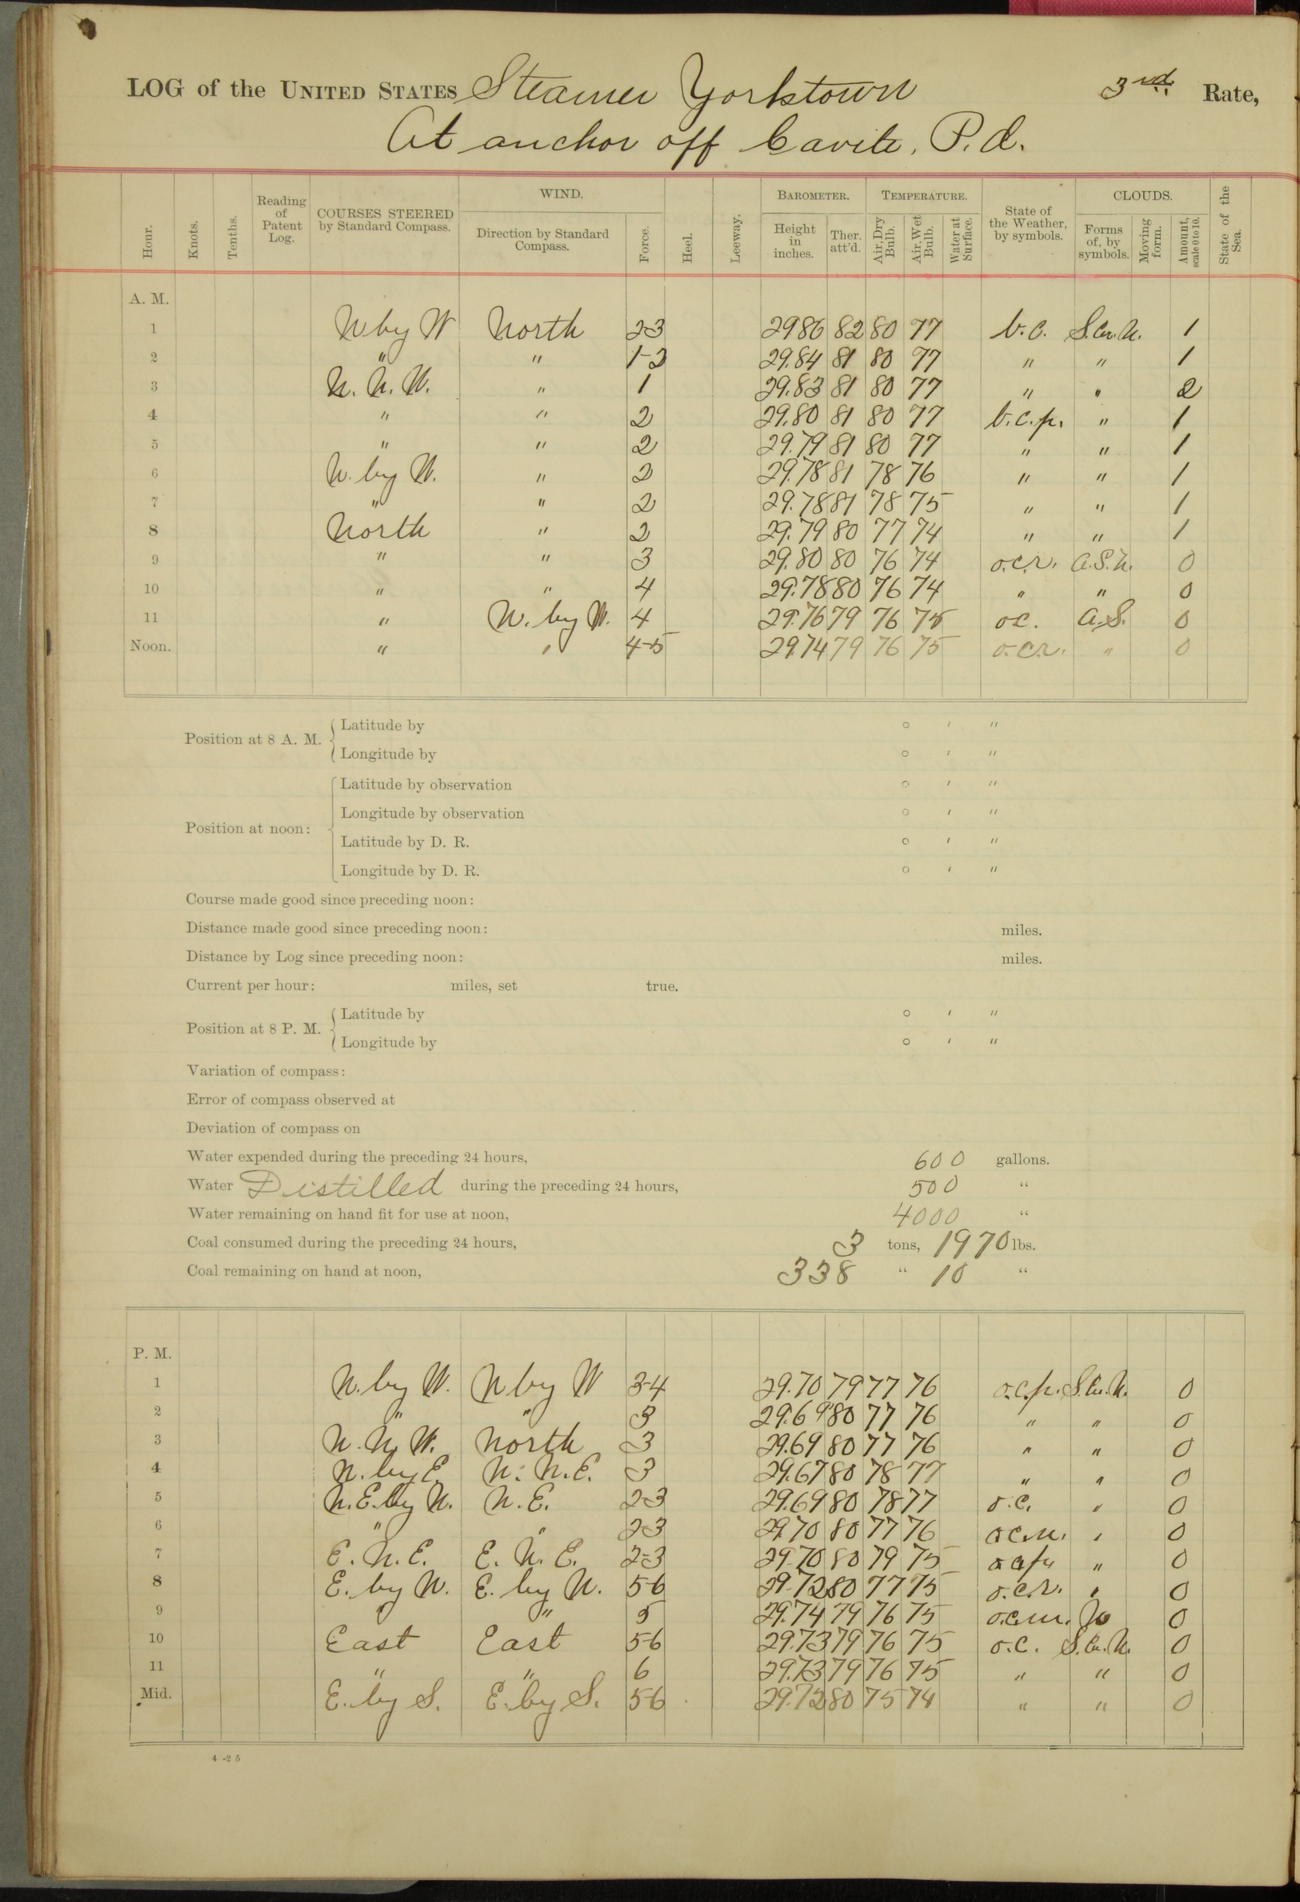 LOG of the UNITED STATES Steamer Yorkstown 3rd Rate,
At anchor off Cavite, P.I.
Hour. Knots. Tenths. Reading of Patent Log. COURSES STEERED by Standard Compass. WIND. Direction by Standard Compass. Force. Heel. Leeway. BAROMETER. Height in inches. Ther. att'd. TEMPERATURE. Air, Dry Bulb. Air, Wet Bulb. Water at Surface. State of the Weather, by symbols. CLOUDS. Forms of, by symbols. Moving form. Amount, scale 0 to 10. State of the Sea.
A. M.
1 N by W North 2-3 29.86 82 80 77 b.c. S.Cu.N. 1
2 " " 1-2 29.84 81 80 77 " " 1
3 N.N.W. " 1 29.83 81 80 77 " " 2
4 " " 2 29.80 81 80 77 b.c.p. " 1
5 " " 2 29.79 81 80 77 " " 1
6 N. by W. " 2 29.78 81 78 76 " " 1
7 " " 2 29.78 81 78 75 " " 1
8 North " 2 29.79 80 77 74 " " 1
9 " " 3 29.80 80 76 74 o.c.r. a.S.N. 0
10 " " 4 29.78 80 76 74 " " 0
11 " N. by W. 4 29.76 79 76 75 oc. a.S. 0
Noon. " " 4-5 29.74 79 76 75 o.c.r. " 0
Position at 8 A. M. Latitude by ° ′ ″
Longitude by ° ′ ″
Position at noon: Latitude by observation ° ′ ″
Longitude by observation ° ′ ″
Latitude by D. R. ° ′ ″
Longitude by D. R. ° ′ ″
Course made good since preceding noon:
Distance made good since preceding noon: miles.
Distance by Log since preceding noon: miles.
Current per hour: miles, set true.
Position at 8 P. M. Latitude by ° ′ ″
Longitude by ° ′ ″
Variation of compass:
Error of compass observed at
Deviation of compass on
Water expended during the preceding 24 hours, 600 gallons.
Water Distilled during the preceding 24 hours, 500 "
Water remaining on hand fit for use at noon, 4000 "
Coal consumed during the preceding 24 hours, 3 tons, 1970 lbs.
Coal remaining on hand at noon, 338 " 10 "
P. M.
1 N. by W. N by W 3-4 29.70 79 77 76 o.c.p. S.Cu.N. 0
2 " " 3 29.69 80 77 76 " " 0
3 N.N.W. North 3 29.69 80 77 76 " " 0
4 N. by E. N.N.E. 3 29.67 80 78 77 " " 0
5 N.E. by N. N.E. 2-3 29.69 80 78 77 o.c. " 0
6 " " 2-3 29.70 80 77 76 " 0
7 E.N.E. E.N.E. 2-3 29.70 80 79 75 " 0
8 E. by N. E. by N. 5-6 29.72 80 77 75 o.c.r. " 0
9 " " 5 29.74 79 76 75 o.c.m. 0
10 East East 5-6 29.73 79 76 75 o.c. S.Cu.N. 0
11 " " 6 29.73 79 76 75 " " 0
Mid. E. by S. E. by S. 5-6 29.72 80 75 74 " " 0
4-25